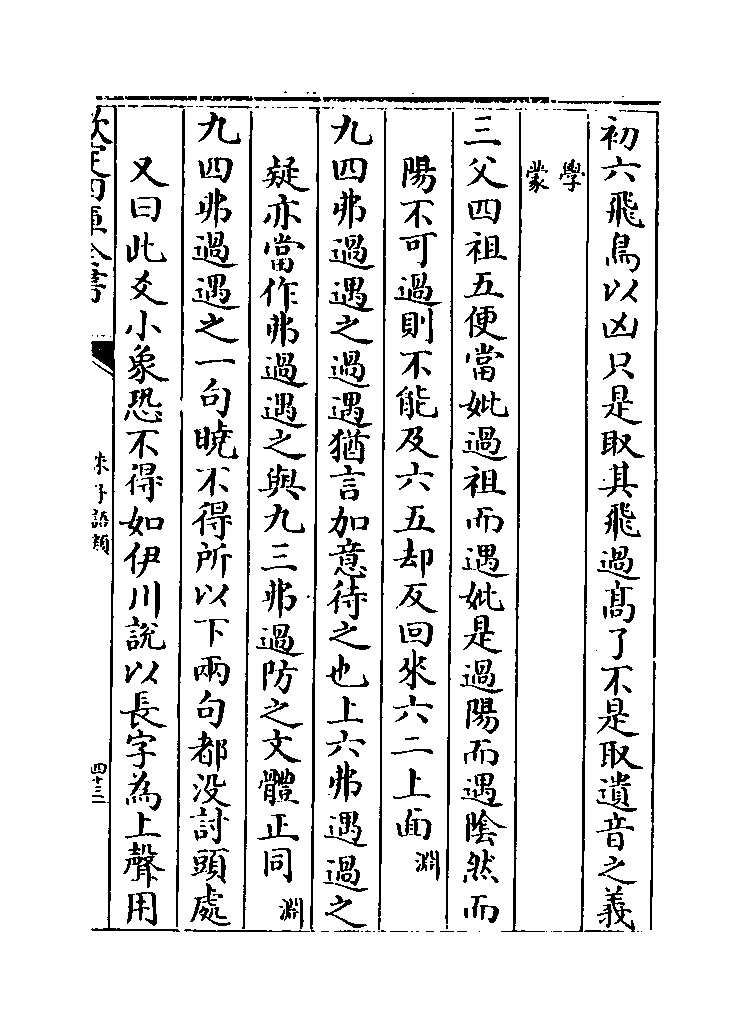 初六飛鳥以凶只是取其飛過髙了不是取遺音之義
學蒙
三父四祖五便當妣過祖而遇妣是過陽而遇隂然而
陽不可過則不能及六五却反回來六二上面淵
九四弗過遇之過遇猶言加意待之也上六弗遇過之
疑亦當作弗過遇之與九三弗過防之文體正同淵
九四弗過遇之一句曉不得所以下兩句都没討頭處
又曰此爻小象恐不得如伊川說以長字為上聲用
欽定四庫全書
朱子語類
四十三